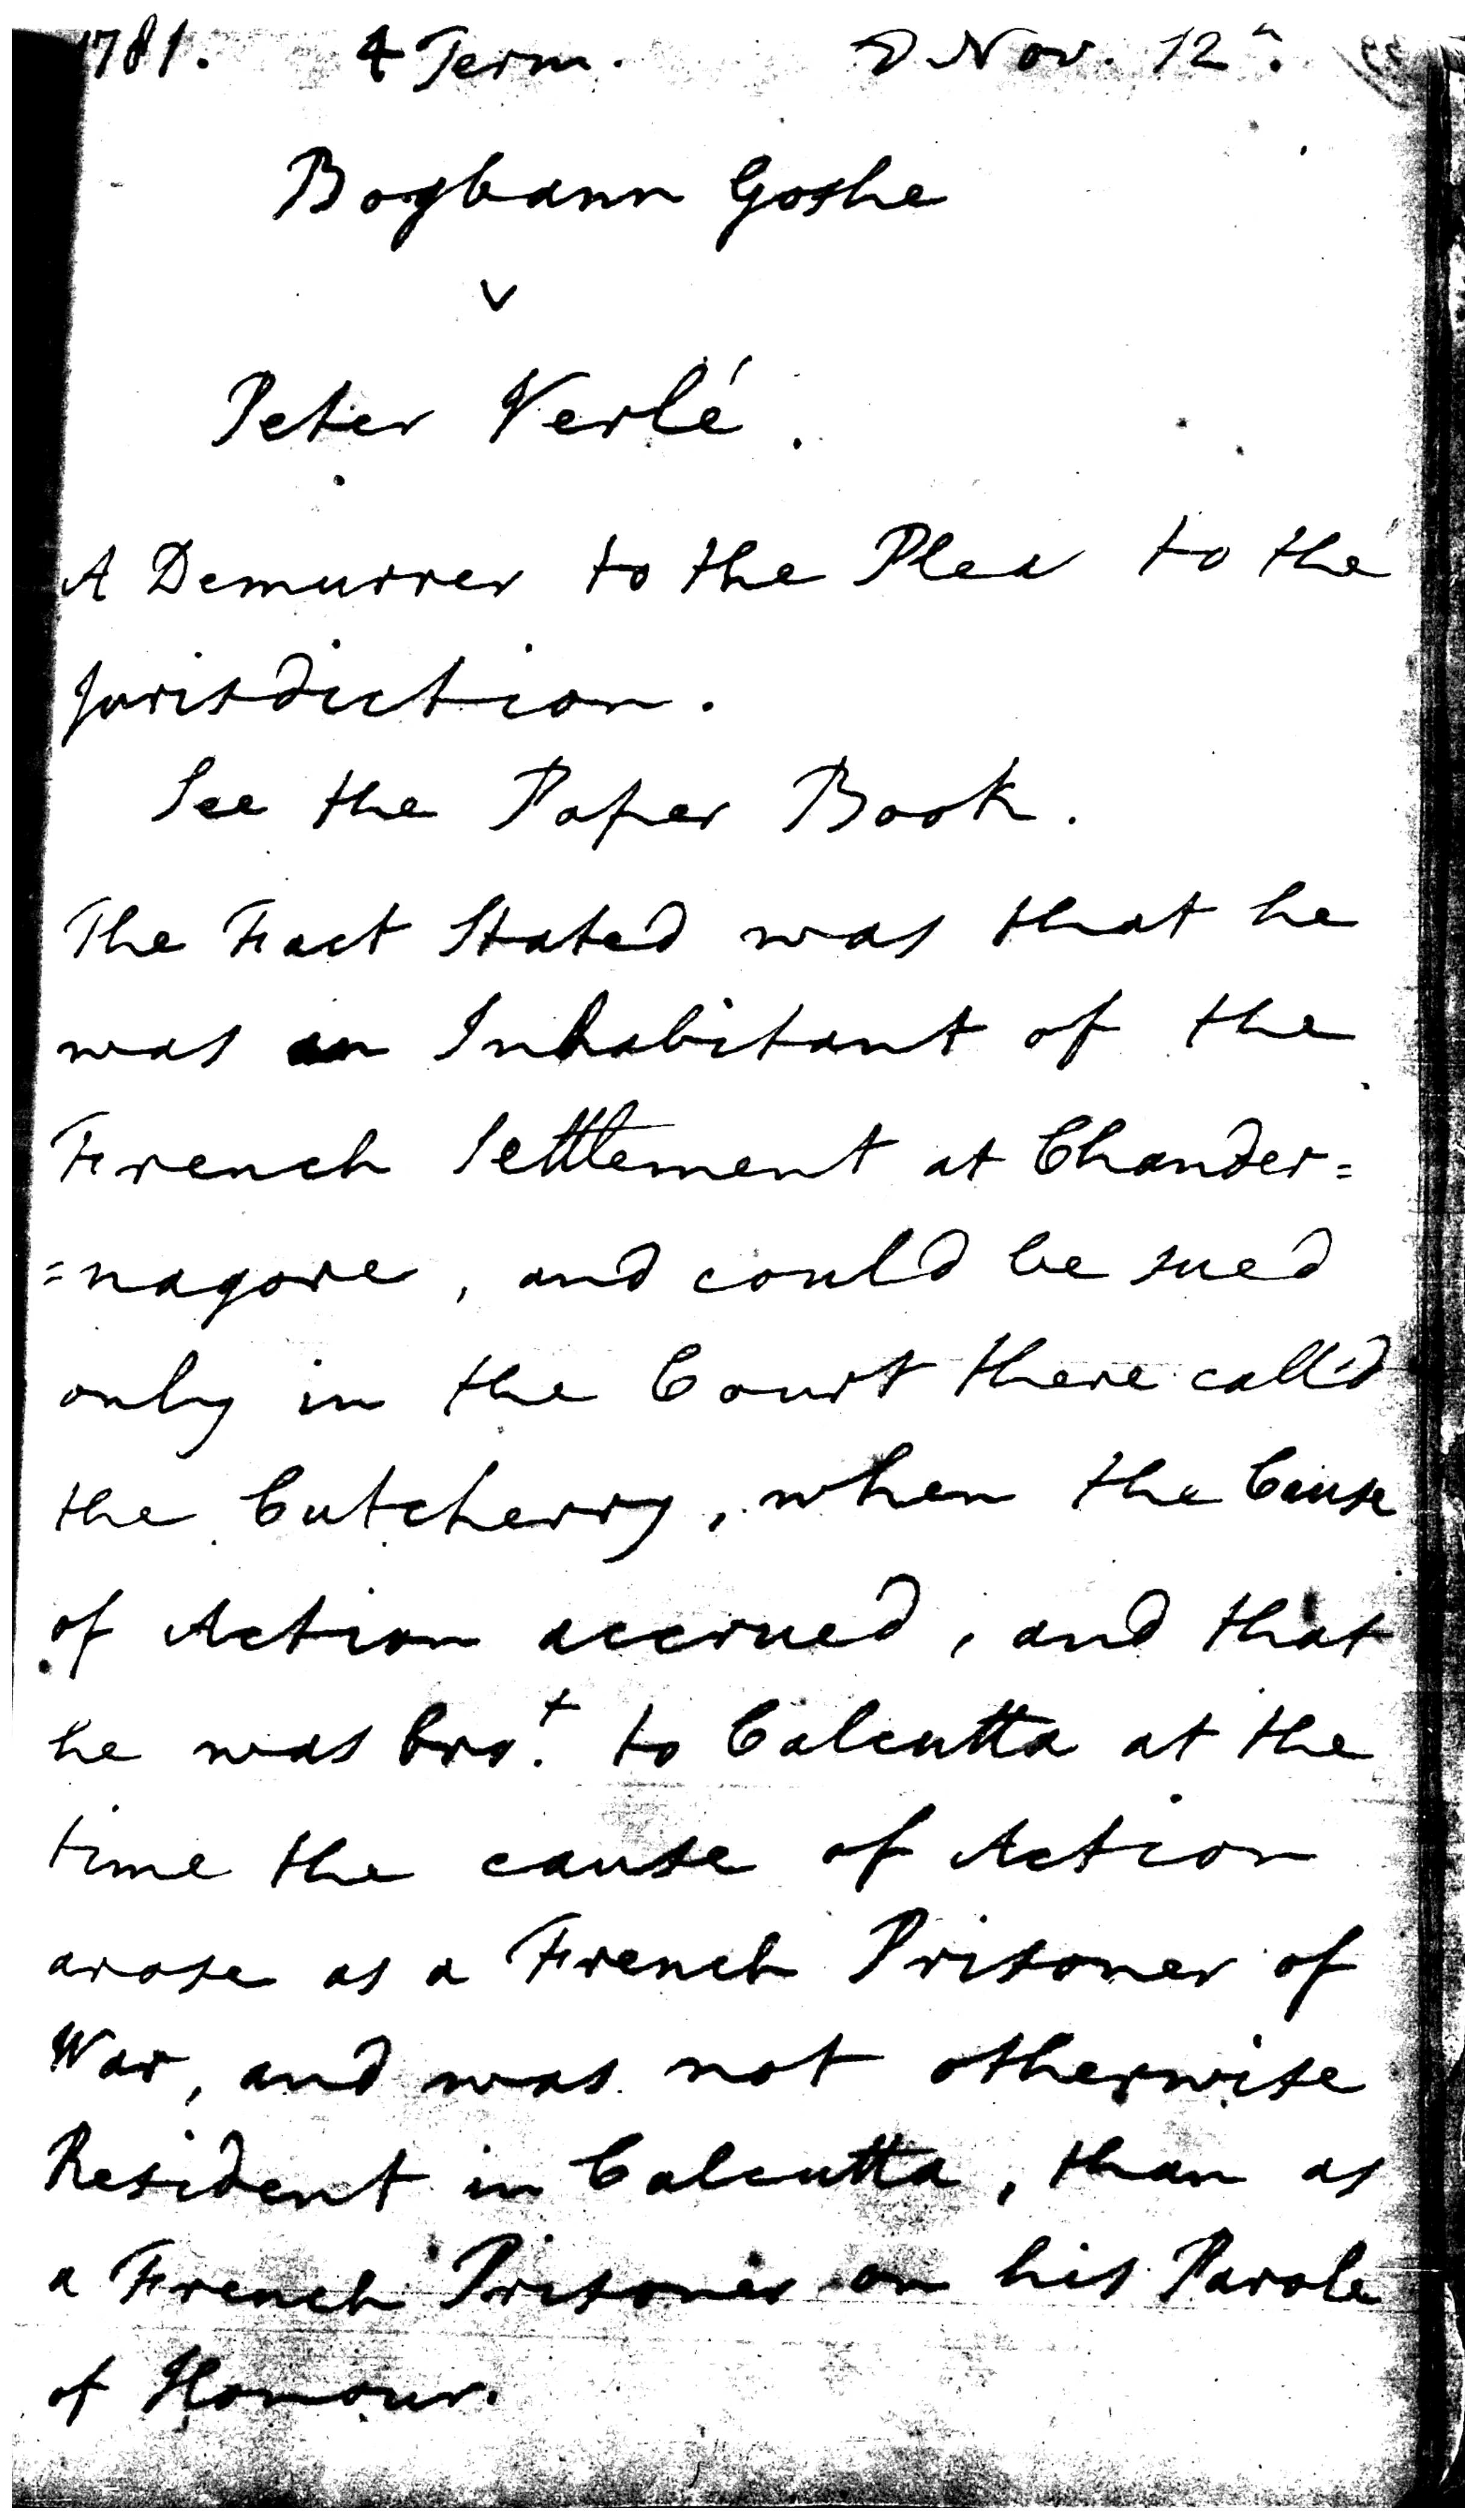 1781. 4 Term. Nov. 12.
Bogbann Goshe
v
Peter Verlé.
A Demurrer to the Plea to the
Jurisdiction.
See the Paper Book.
The Fact Stated was that he
was an Inhabitant of the
French Settlement at Chander=
=nagore, and could be sued
only in the Court there call'd
the Cutcherry, when the Cause
of Action accrued, and that
he was bro.t to Calcutta at the
time the cause of Action
arose as a French Prisoner of
War, and was not otherwise
Resident in Calcutta, than as
a French Prisoner on his Parole
of Honour.